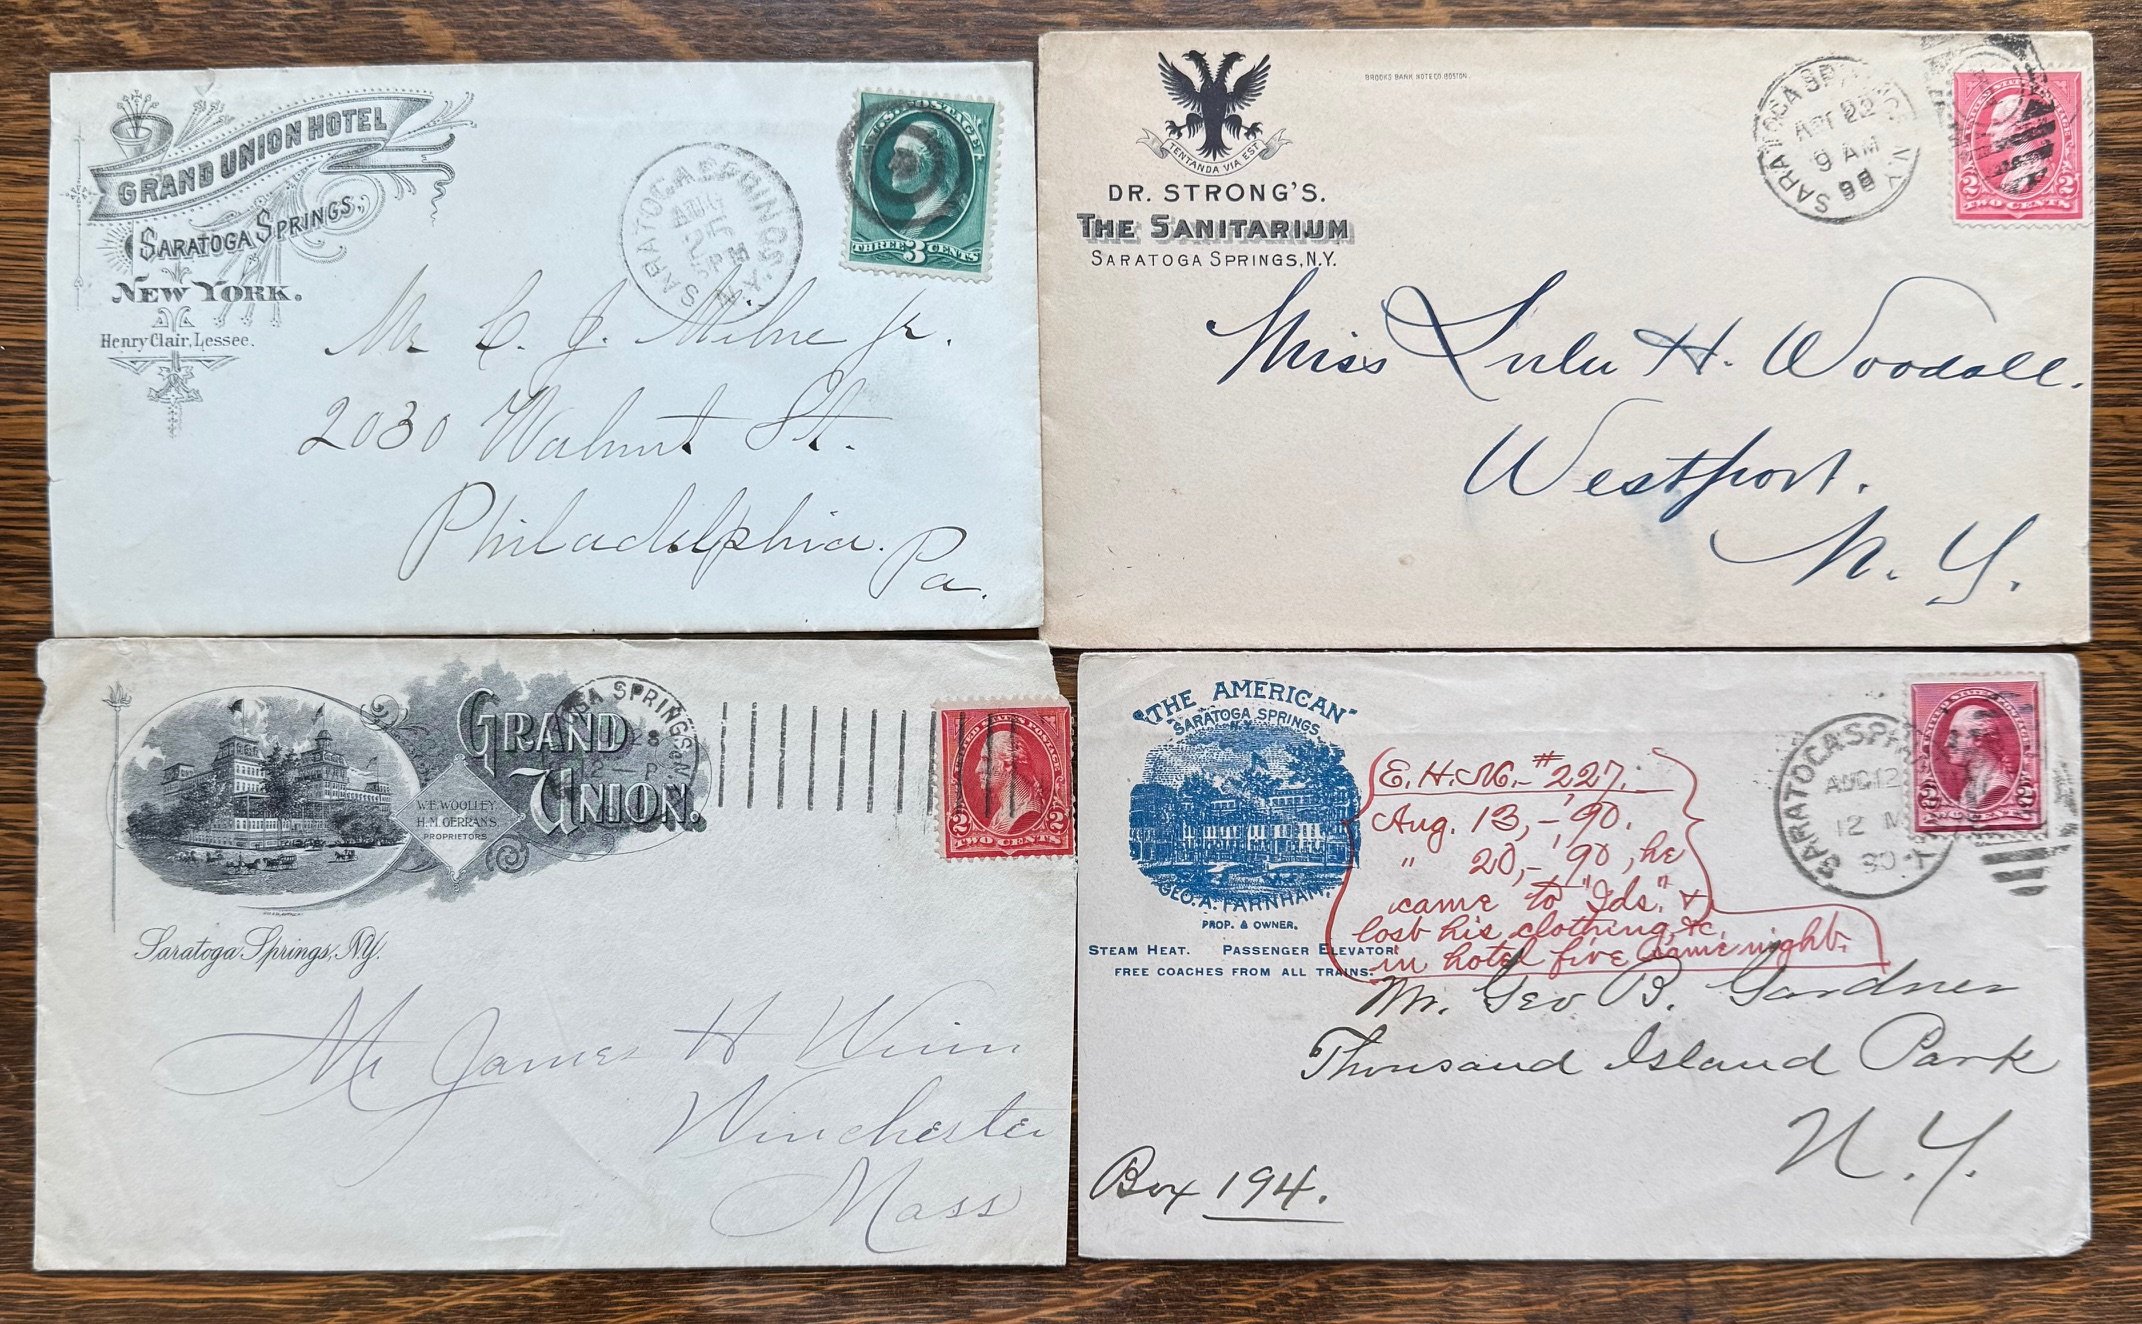 GRAND UNION HOTEL
SARATOGA SPRINGS,
NEW YORK.
Henry Clair, Lessee.
SARATOGA SPRINGS
AUG
5 PM
N.Y.
U.S. POSTAGE
THREE 3 CENTS
Mr C. J. Milne Jr.
2030 Walnut St.
Philadelphia.
Pa.
BROOKS BANK NOTE CO. BOSTON.
TENTANDA VIA EST
DR. STRONG'S.
THE SANITARIUM
SARATOGA SPRINGS, N.Y.
SARATOGA SPRINGS N.Y.
22
9 AM
98
2 2
TWO CENTS
Miss Lulu H. Woodall.
Westport.
N. Y.
GRAND
UNION.
W.E. WOOLLEY.
H.M. GERRANS.
PROPRIETORS
Saratoga Springs, N.Y.
OGA SPRINGS N.Y.
28
2 - P
UNITED STATES POSTAGE
2 2
TWO CENTS
Mr James H Winn
Winchester
Mass
"THE AMERICAN"
SARATOGA SPRINGS
N.Y.
GEO. A. FARNHAM,
PROP. & OWNER.
STEAM HEAT. PASSENGER ELEVATOR.
FREE COACHES FROM ALL TRAINS.
E. H. M. - #227.
Aug. 13, - '90.
" 20, - '90, he
came to "Ids." &
lost his clothing, &c.
in hotel fire same night.
SARATOGA SPRINGS
AUG 12
12 M
90
2 2
Mr. Geo B. Gardner
Thousand Island Park
N. Y.
Box 194.